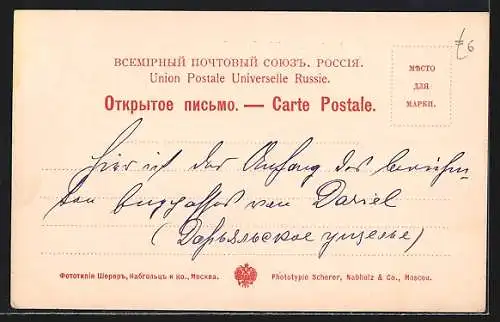 ВСЕМІРНЫЙ ПОЧТОВЫЙ СОЮЗЪ. РОССІЯ.
Union Postale Universelle Russie.
Открытое письмо. — Carte Postale.
МѢСТО
ДЛЯ
МАРКИ.
Hier ist der Anfang des berühm-
ten Engpasses von Dariel
(Дарьяльское ущелье)
Фототипія Шереръ, Набгольцъ и Ко., Москва.
Phototypie Scherer, Nabholz & Co., Moscou.